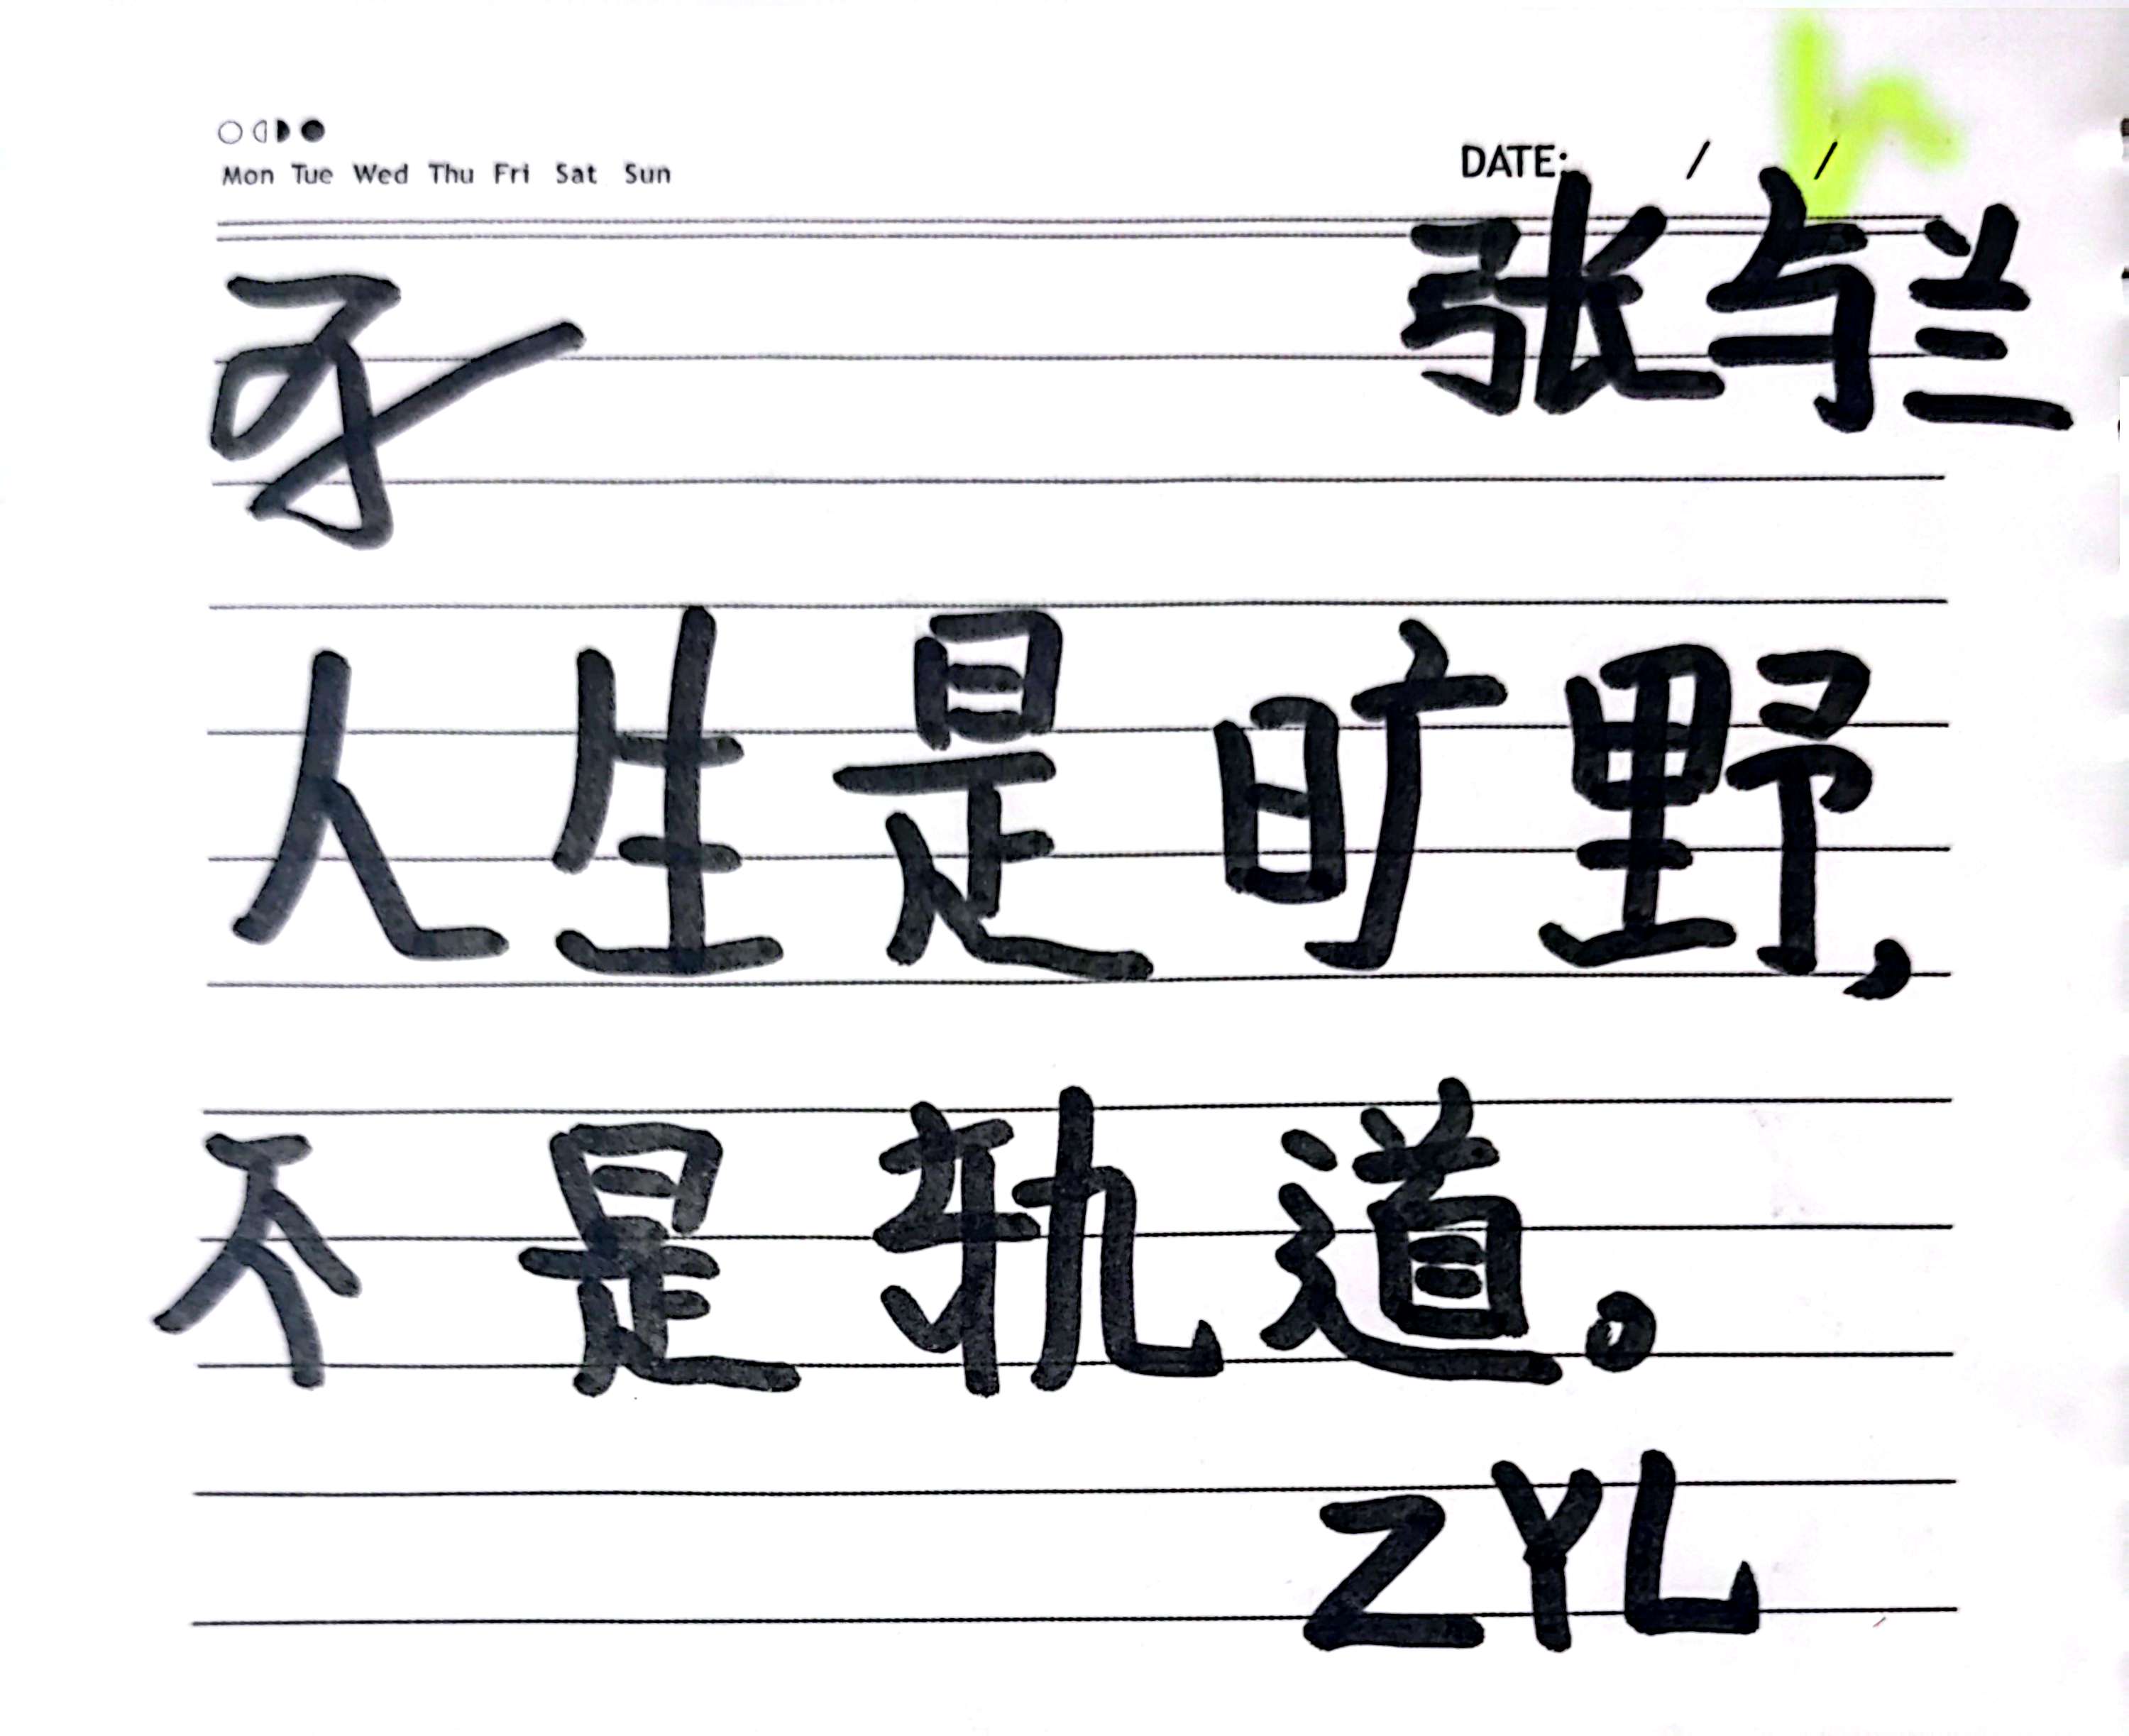 Mon Tue Wed Thu Fri Sat Sun
DATE: / /
张与兰
人生是旷野,
不是轨道。
ZYL